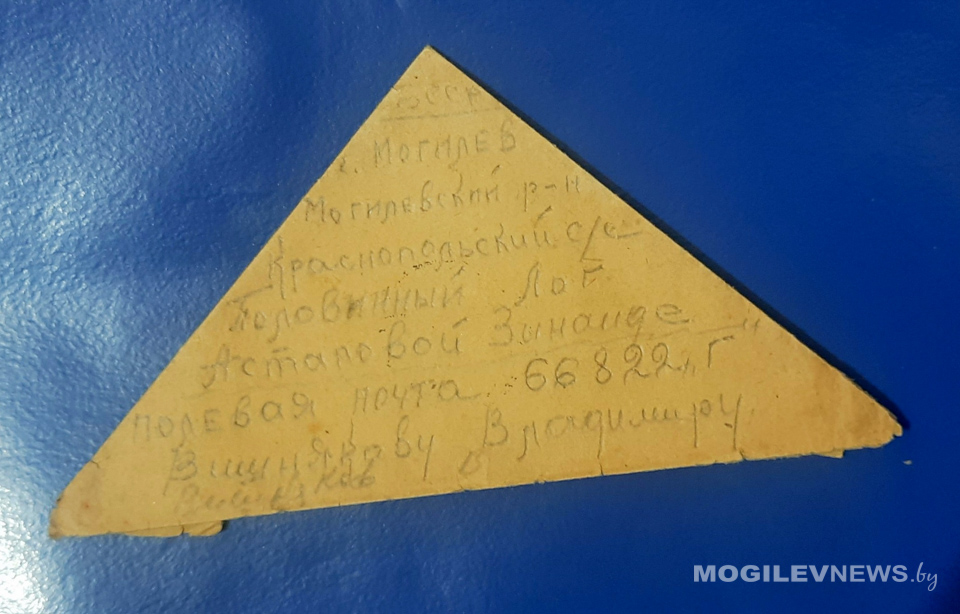 БССР
г. Могилев
Могилевский р-н
Краснопольский с/с
Половинный Лог
Астаповой Зинаиде
полевая почта 66822 „Г"
Вишнякову Владимиру
Вишняков
MOGILEVNEWS.by